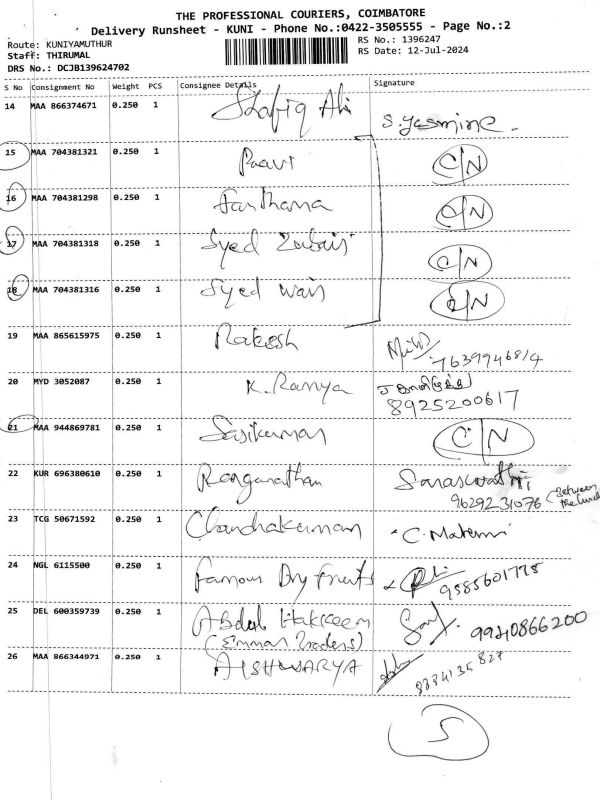 THE PROFESSIONAL COURIERS, COIMBATORE
Delivery Runsheet - KUNI - Phone No.:0422-3505555 - Page No.:2
Route: KUNIYAMUTHUR
RS No.: 1396247
Staff: THIRUMAL
RS Date: 12-Jul-2024
DRS No.: DCJB139624702
S No Consignment No Weight PCS Consignee Details Signature
14 MAA 866374671 0.250 1 Shafiq Ali S. Yasmine.
15 MAA 704381321 0.250 1 C/N
16 MAA 704381298 0.250 1 Farthana C/N
17 MAA 704381318 0.250 1 Syed Zubair C/N
18 MAA 704381316 0.250 1 Syed wais C/N
19 MAA 865615975 0.250 1 Rakesh 7639946814
20 MYD 3052087 0.250 1 K. Ramya 8925200617
21 MAA 944869781 0.250 1 Sasikumar C/N
22 KUR 696380610 0.250 1 Ranganathan Saraswathi
9629231076 (Between
23 TCG 50671592 0.250 1 Chandrakumar C.
24 NGL 6115500 0.250 1 Famous Dry fruits 9585601775
25 DEL 600359739 0.250 1 Abdul Hakkeem 9940866200
(Emman Traders)
26 MAA 866344971 0.250 1 AISHWARYA
5